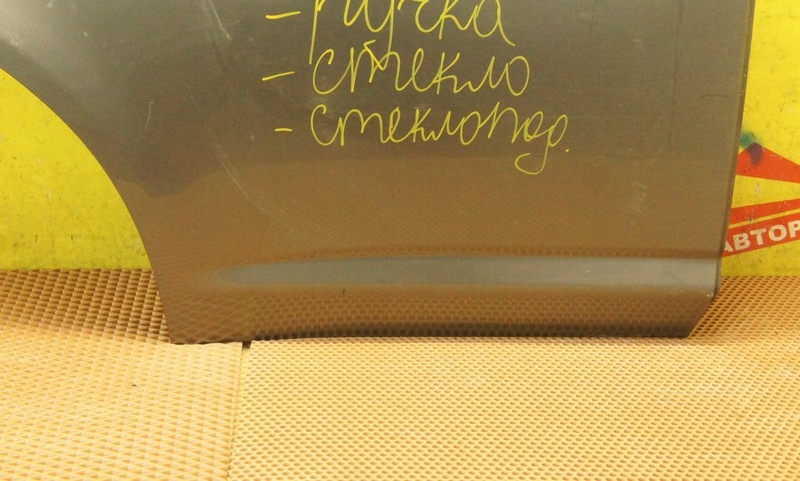 - ручка
- стекло
- стеклопод.
АВТОР